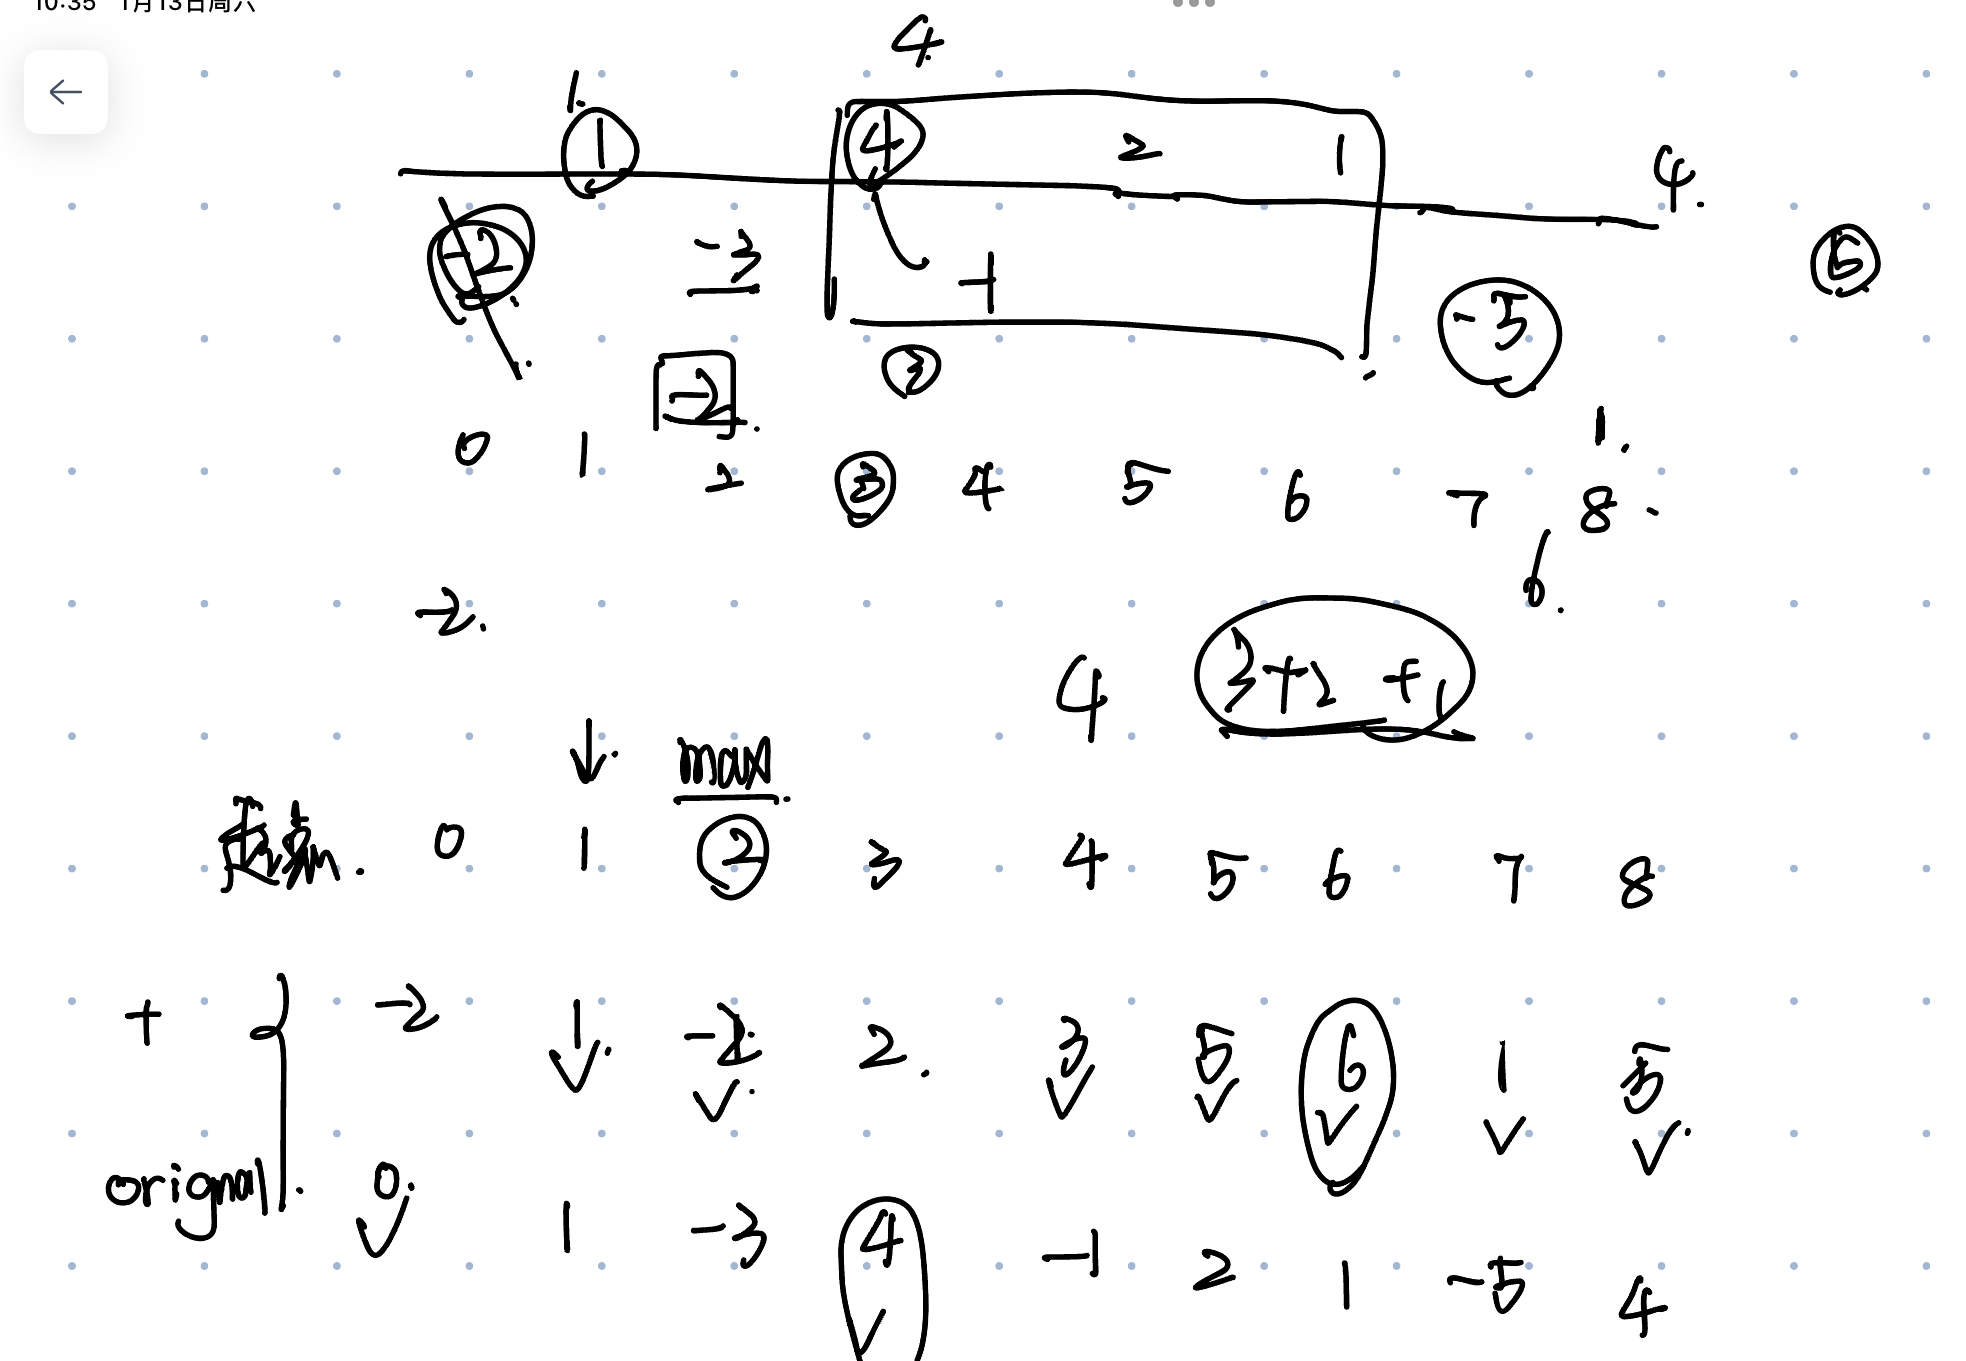 10:35 1月13日周六
4.
1.
1 4 2 1 4.
-2 -3 -1 -5 6
-2 3
1.
0 1 2 3 4 5 6 7 8
6.
-2.
4 3+2+1
max
0 1 2 3 4 5 6 7 8
+ -2 1 -2 2. 3 5 6 1 5
orignal. 0. 1 -3 4 -1 2 1 -5 4